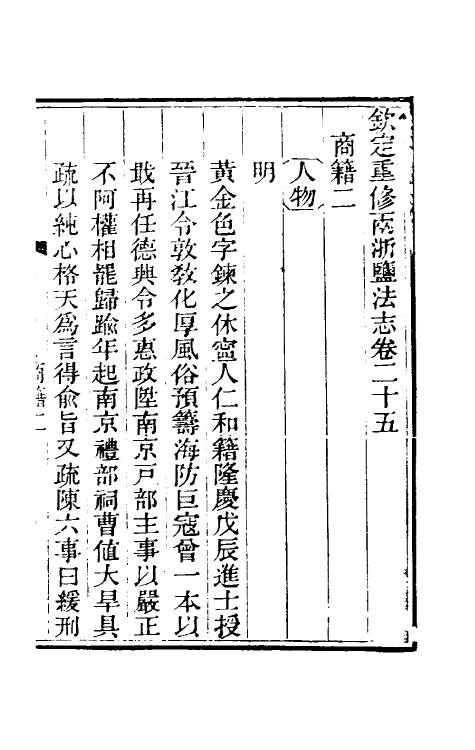 欽定重修兩浙鹽法志卷二十五
商籍二
人物
明
黃金色字鍊之休寧人仁和籍隆慶戊辰進士授
晉江令敦敎化厚風俗預籌海防巨寇曾一本以
戢再任德興令多惠政陞南京戸部主事以嚴正
不阿權相罷歸踰年起南京禮部祠曹値大旱具
疏以純心格天爲言得兪旨又疏陳六事曰緩刑
商籍二